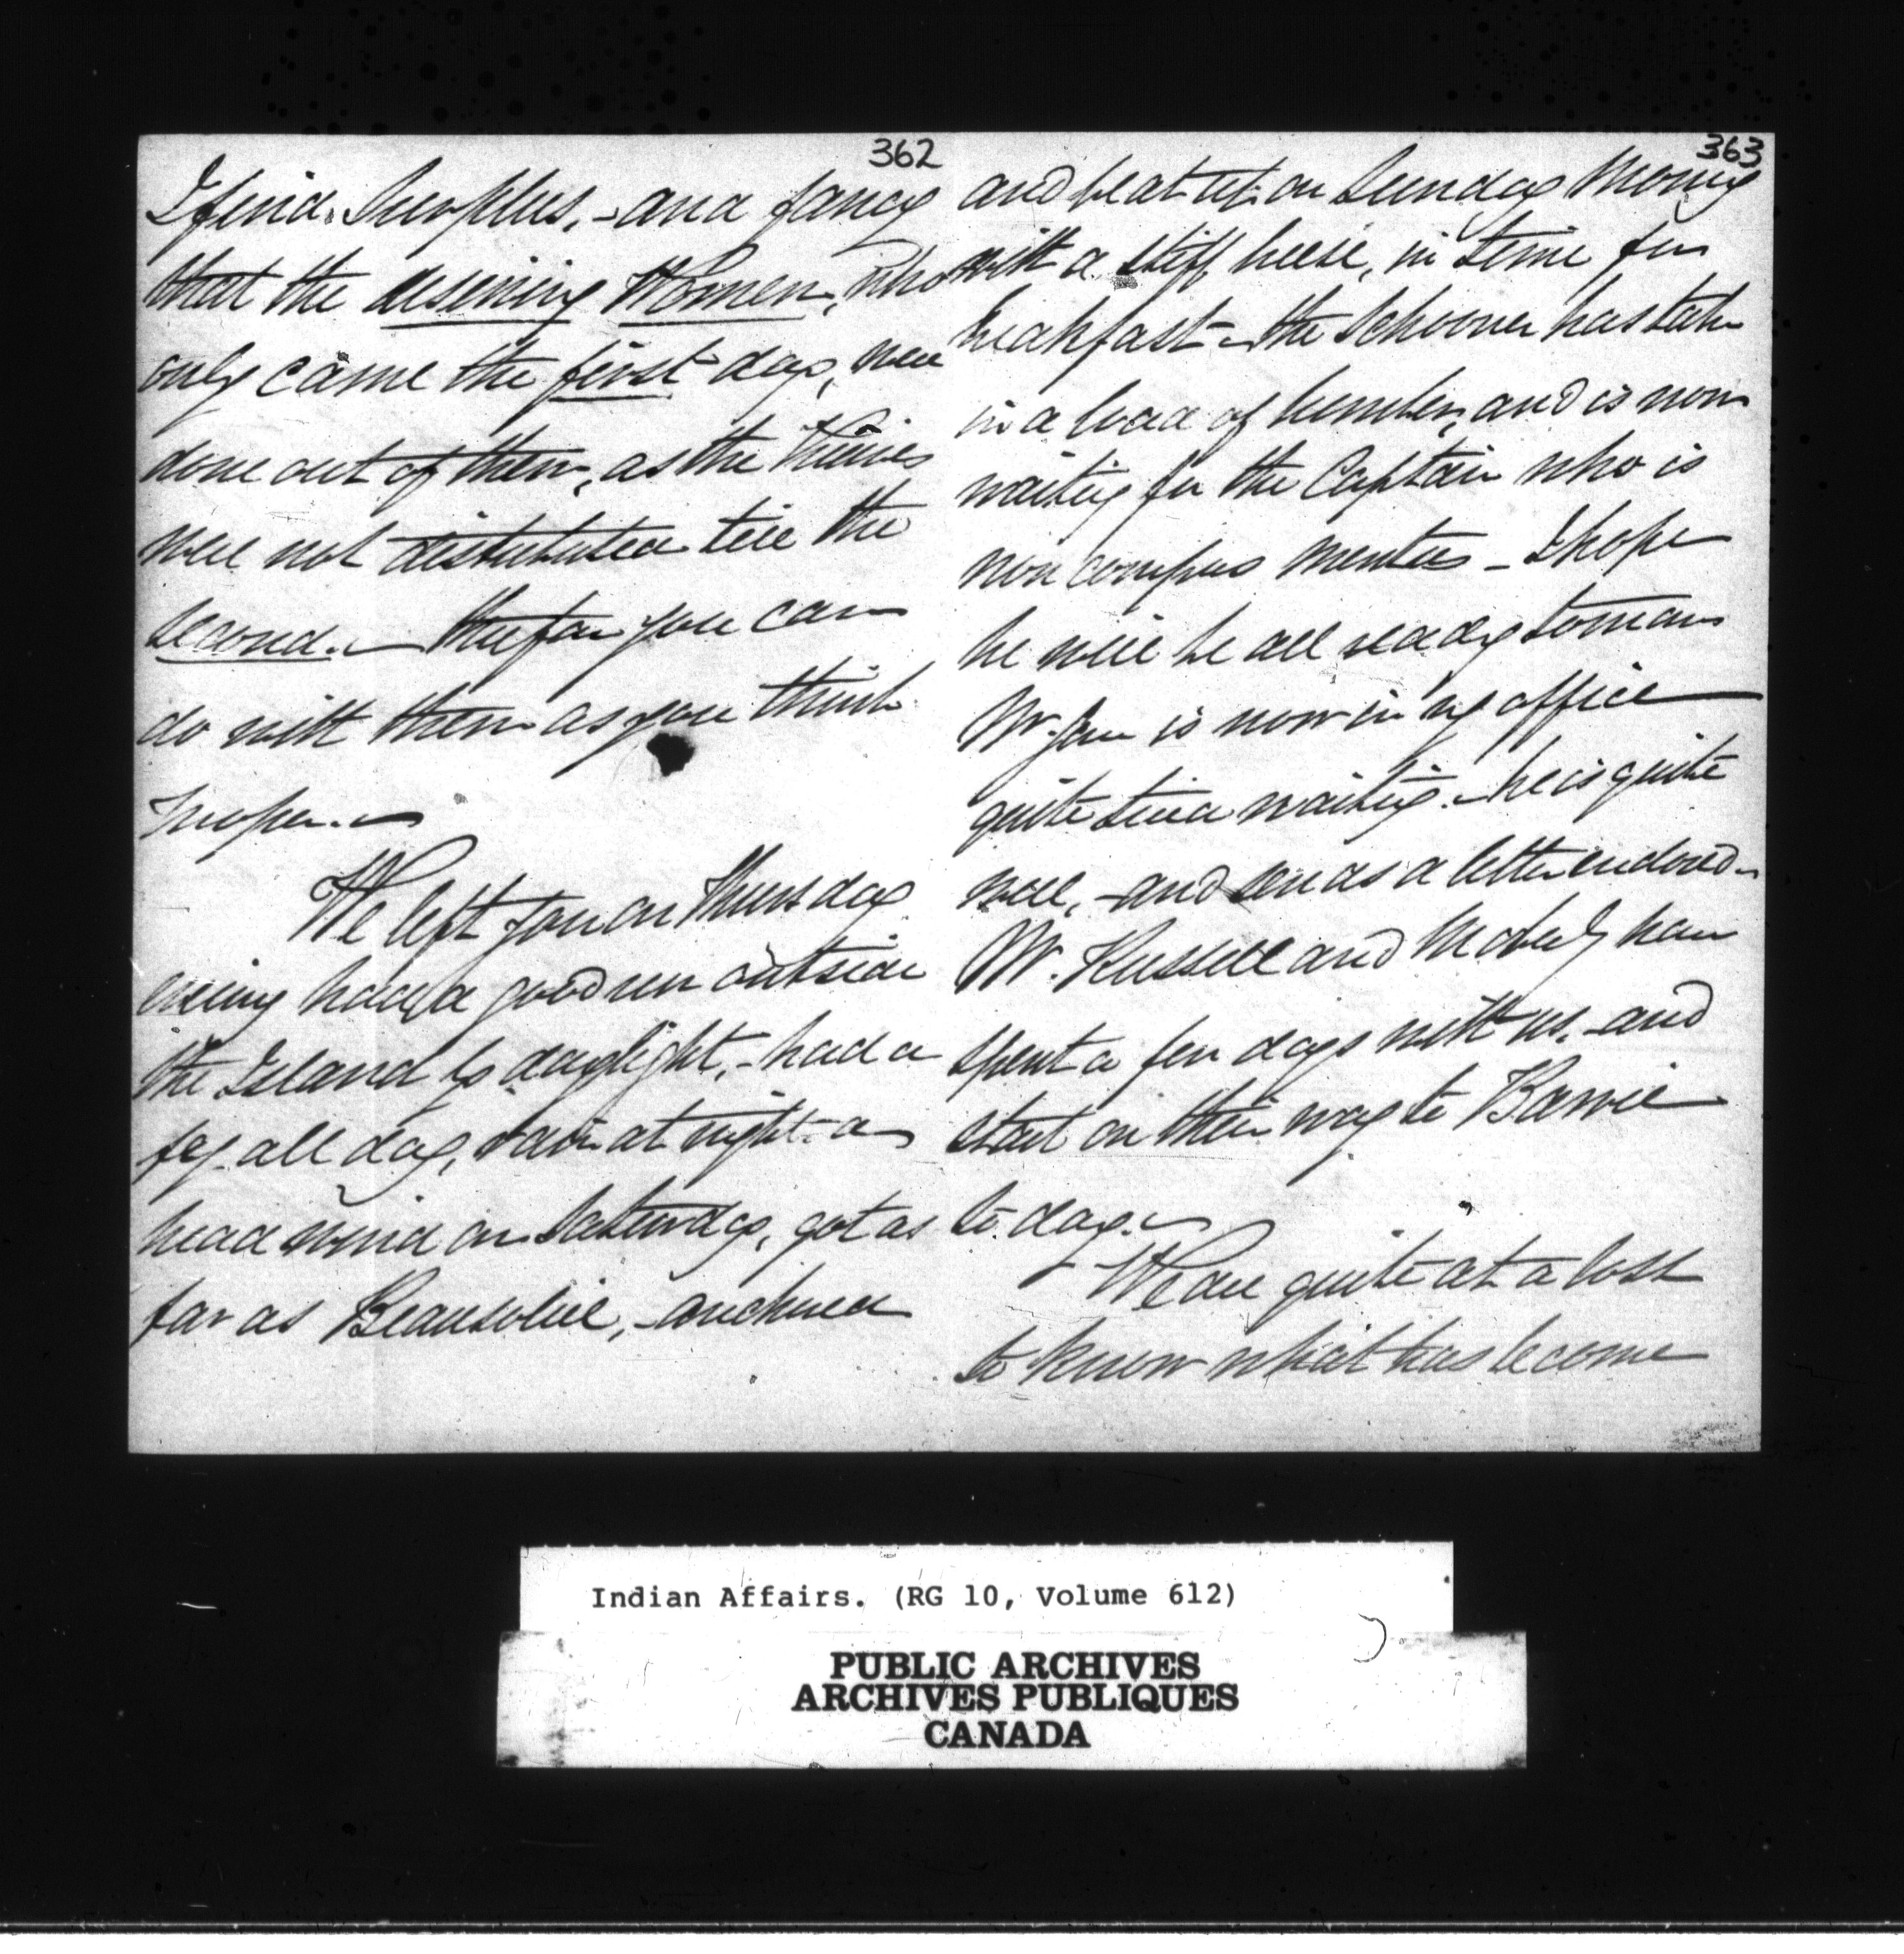 362
I find Surplus, - and fancy
that the deserving Women, who
only came the first day, were
done out of them, as the Knives
were not distributed till the
second. - Therefore you can
do with them as you think
proper. -
We left you on Thursday
evening had a good run outside
the Island by daylight, - had a
fog all day, rain at night - a
head wind on Saturday, got as
far as Beausoliel, - anchored
363
and beat up on Sunday Morning
with a stiff breeze, in time for
breakfast - the Schooner has taken
in a load of lumber, and is now
waiting for the Captain who is
non compus mentus - I hope
he will be all ready tomorrow
Mr. is now in my office
quite tired waiting. - he is quite
well, - and sends a letter enclosed -
Mr. Russell and Moberly have
spent a few days with us, - and
start on their way to Barrie
to day. -
We are quite at a loss
to know what has become
Indian Affairs. (RG 10, Volume 612)
PUBLIC ARCHIVES
ARCHIVES PUBLIQUES
CANADA